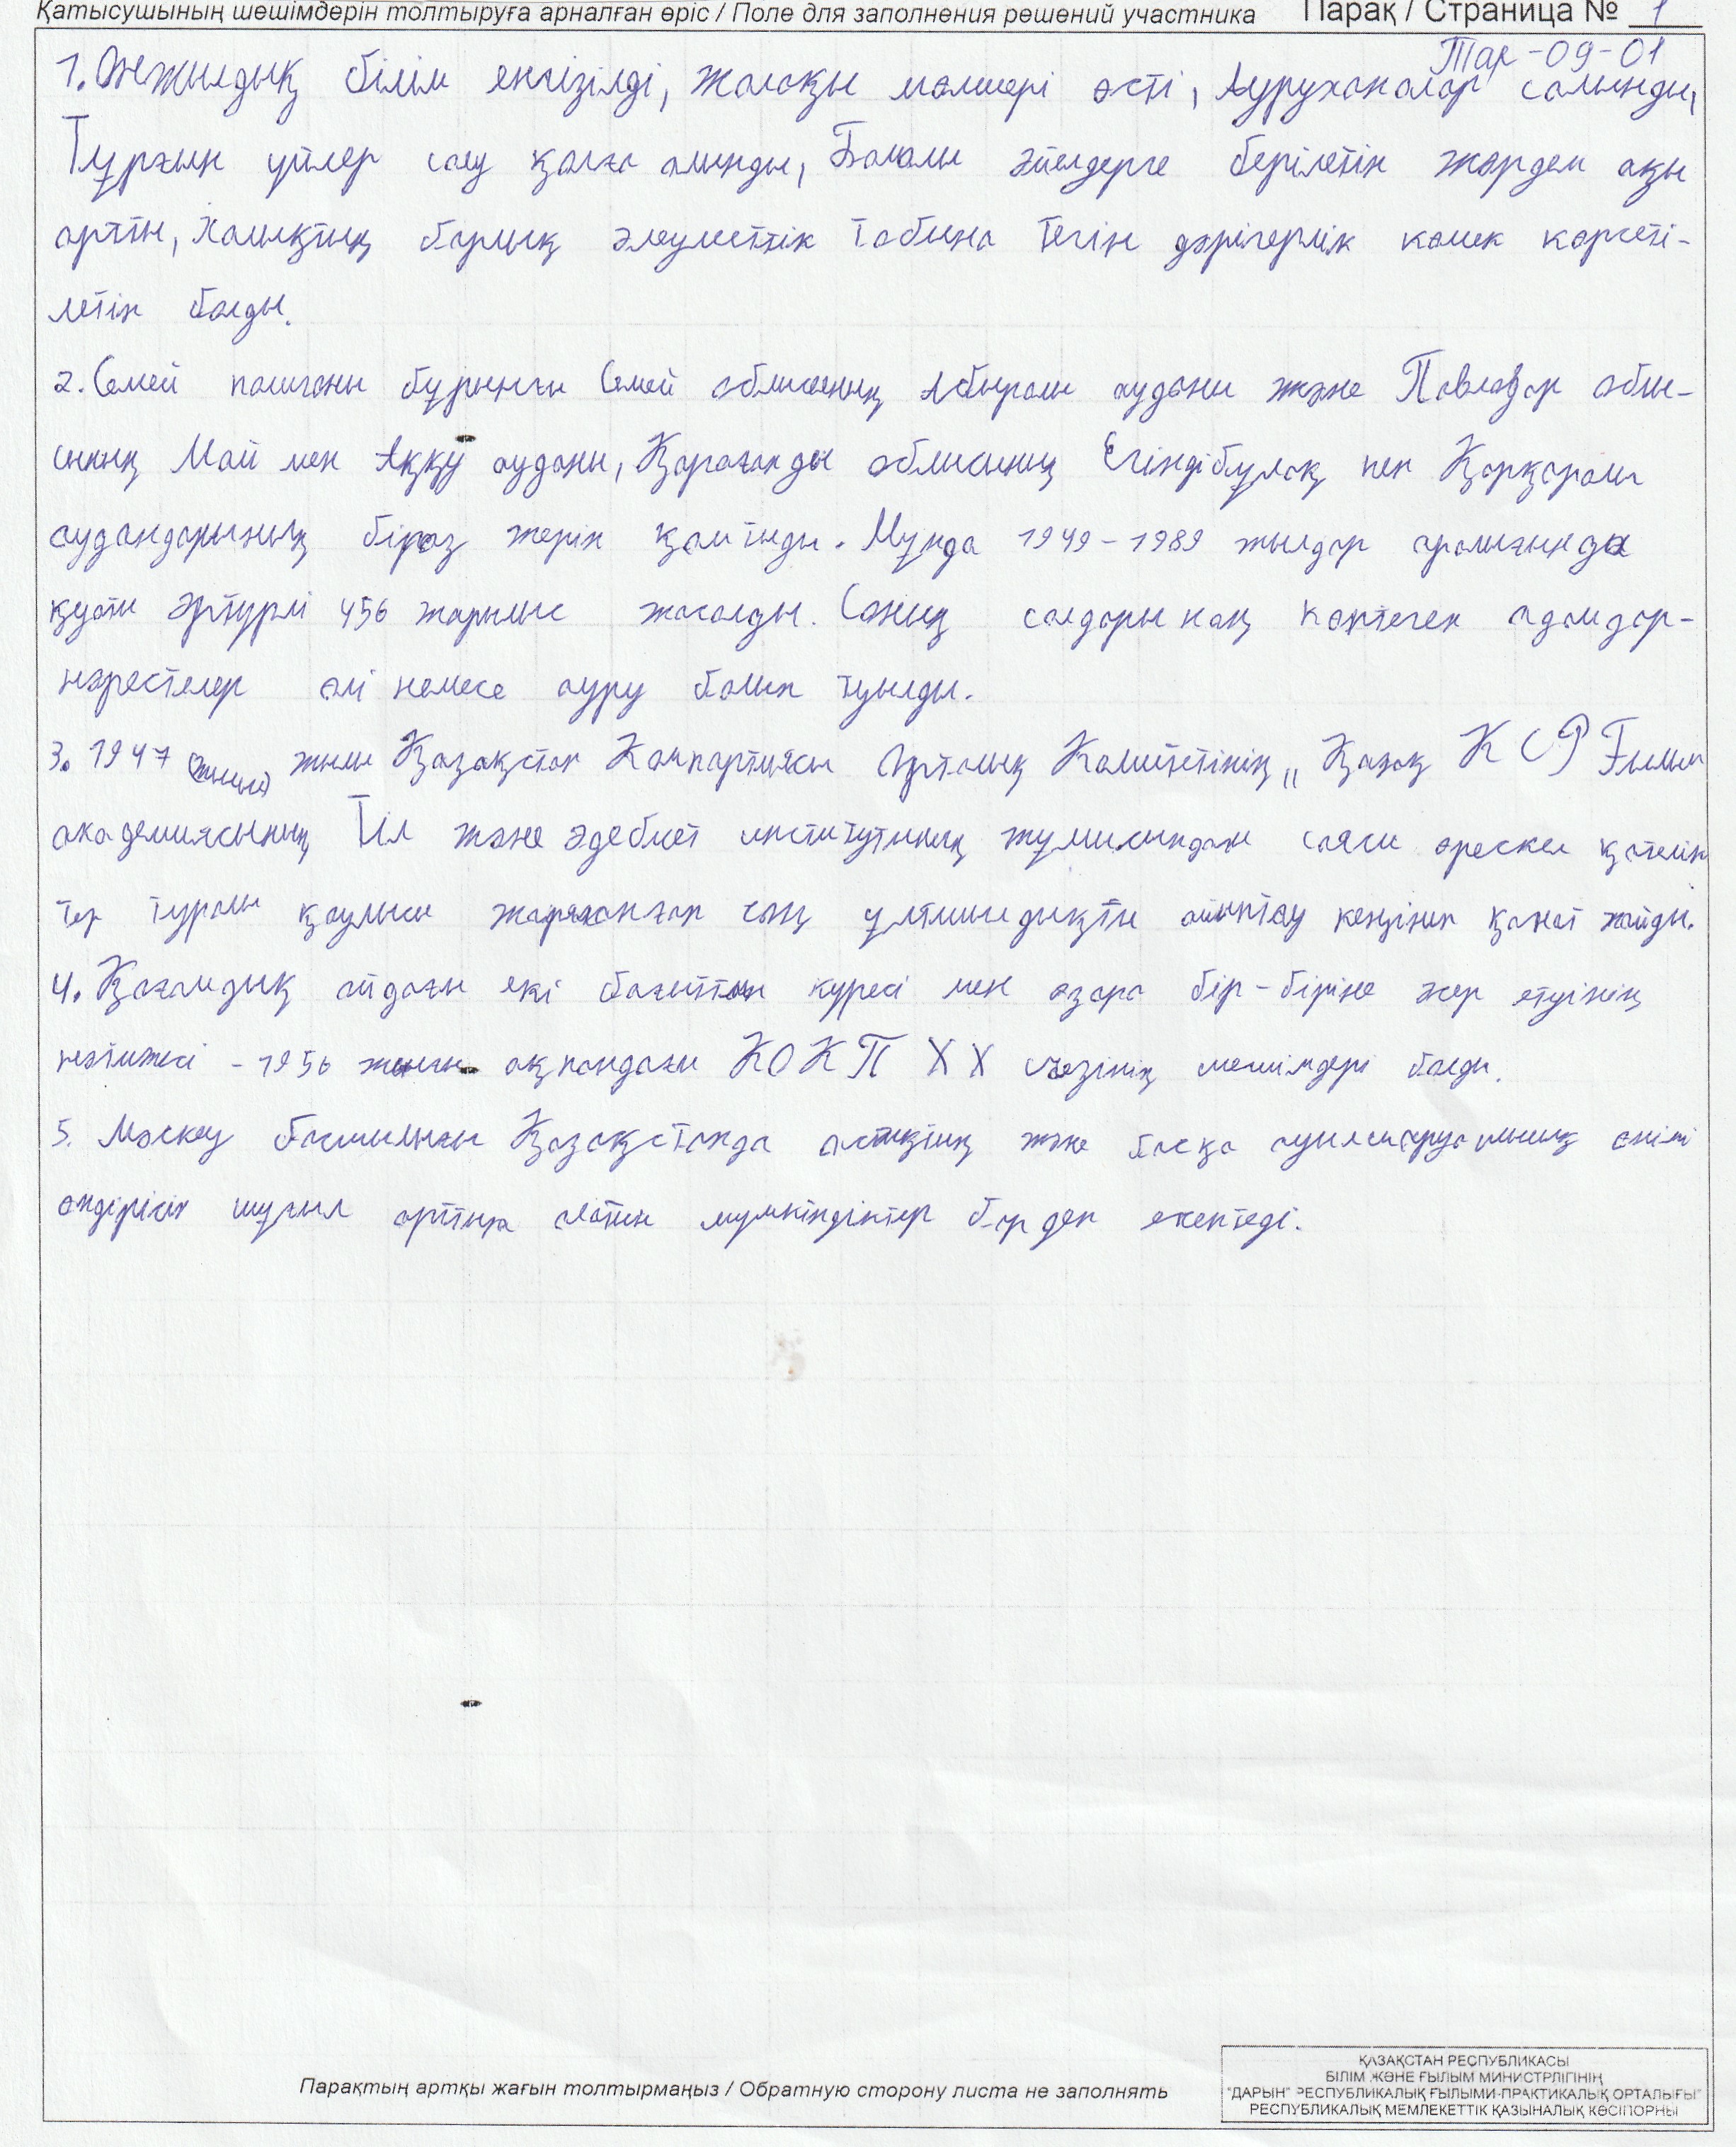 Қатысушының шешімдерін толтыруға арналған өріс / Поле для заполнения решений участника Парақ / Страница № 1
Тар-09-01
1. Онжылдық білім енгізілді, жалақы мөлшері өсті, Ауруханалар салынды,
Тұрғын үйлер салу қолға алынды, Балалы әйелдерге берілетін жәрдем ақы
артты, Халықтың барлық әлеуметтік табына тегін дәрігерлік көмек көрсеті-
летін болды.
2. Семей полигоны бұрынғы Семей облысының Абыралы ауданы және Павлодар облы-
сының Май мен Аққу ауданы, Қарағанды облысының Егіндібұлақ пен Қарқаралы
аудандарының біраз жерін қамтыды. Мұнда 1949-1989 жылдар аралығында
қуаты әртүрлі 456 жарылыс жасалды. Соның салдарынаң көптеген адамдар-
нәрестелер өлі немесе ауру болып туылды.
3. 1947 жылы Қазақстан Компартиясы Орталық Комитетінің „Қазақ КСР Ғылым
академиясының Тіл және әдебиет институтының жұмысындағы саяси өрескел қателік
тер туралы қаулысы жарияланған соң ұлтшылдықты айыптау кеңінен қанат жайды.
4. Қоғамдық ойдағы екі бағыттың күресі мен өзара бір-біріне әсер етуінің
нәтижесі - 1956 ақпандағы КОКП ХХ съезінің шешімдері болды.
5. Мәскеу басшылығы Қазақстанда астықтың және басқа ауылшаруашылық өнімі
өндірісін шұғыл арттыра алатын мүмкіндіктер бар деп есептеді.
Парақтың артқы жағын толтырмаңыз / Обратную сторону листа не заполнять
ҚАЗАҚСТАН РЕСПУБЛИКАСЫ
БІЛІМ ЖӘНЕ ҒЫЛЫМ МИНИСТРЛІГІНІҢ
"ДАРЫН" РЕСПУБЛИКАЛЫҚ ҒЫЛЫМИ-ПРАКТИКАЛЫҚ ОРТАЛЫҒЫ"
РЕСПУБЛИКАЛЫҚ МЕМЛЕКЕТТІК ҚАЗЫНАЛЫҚ КӘСІПОРНЫ